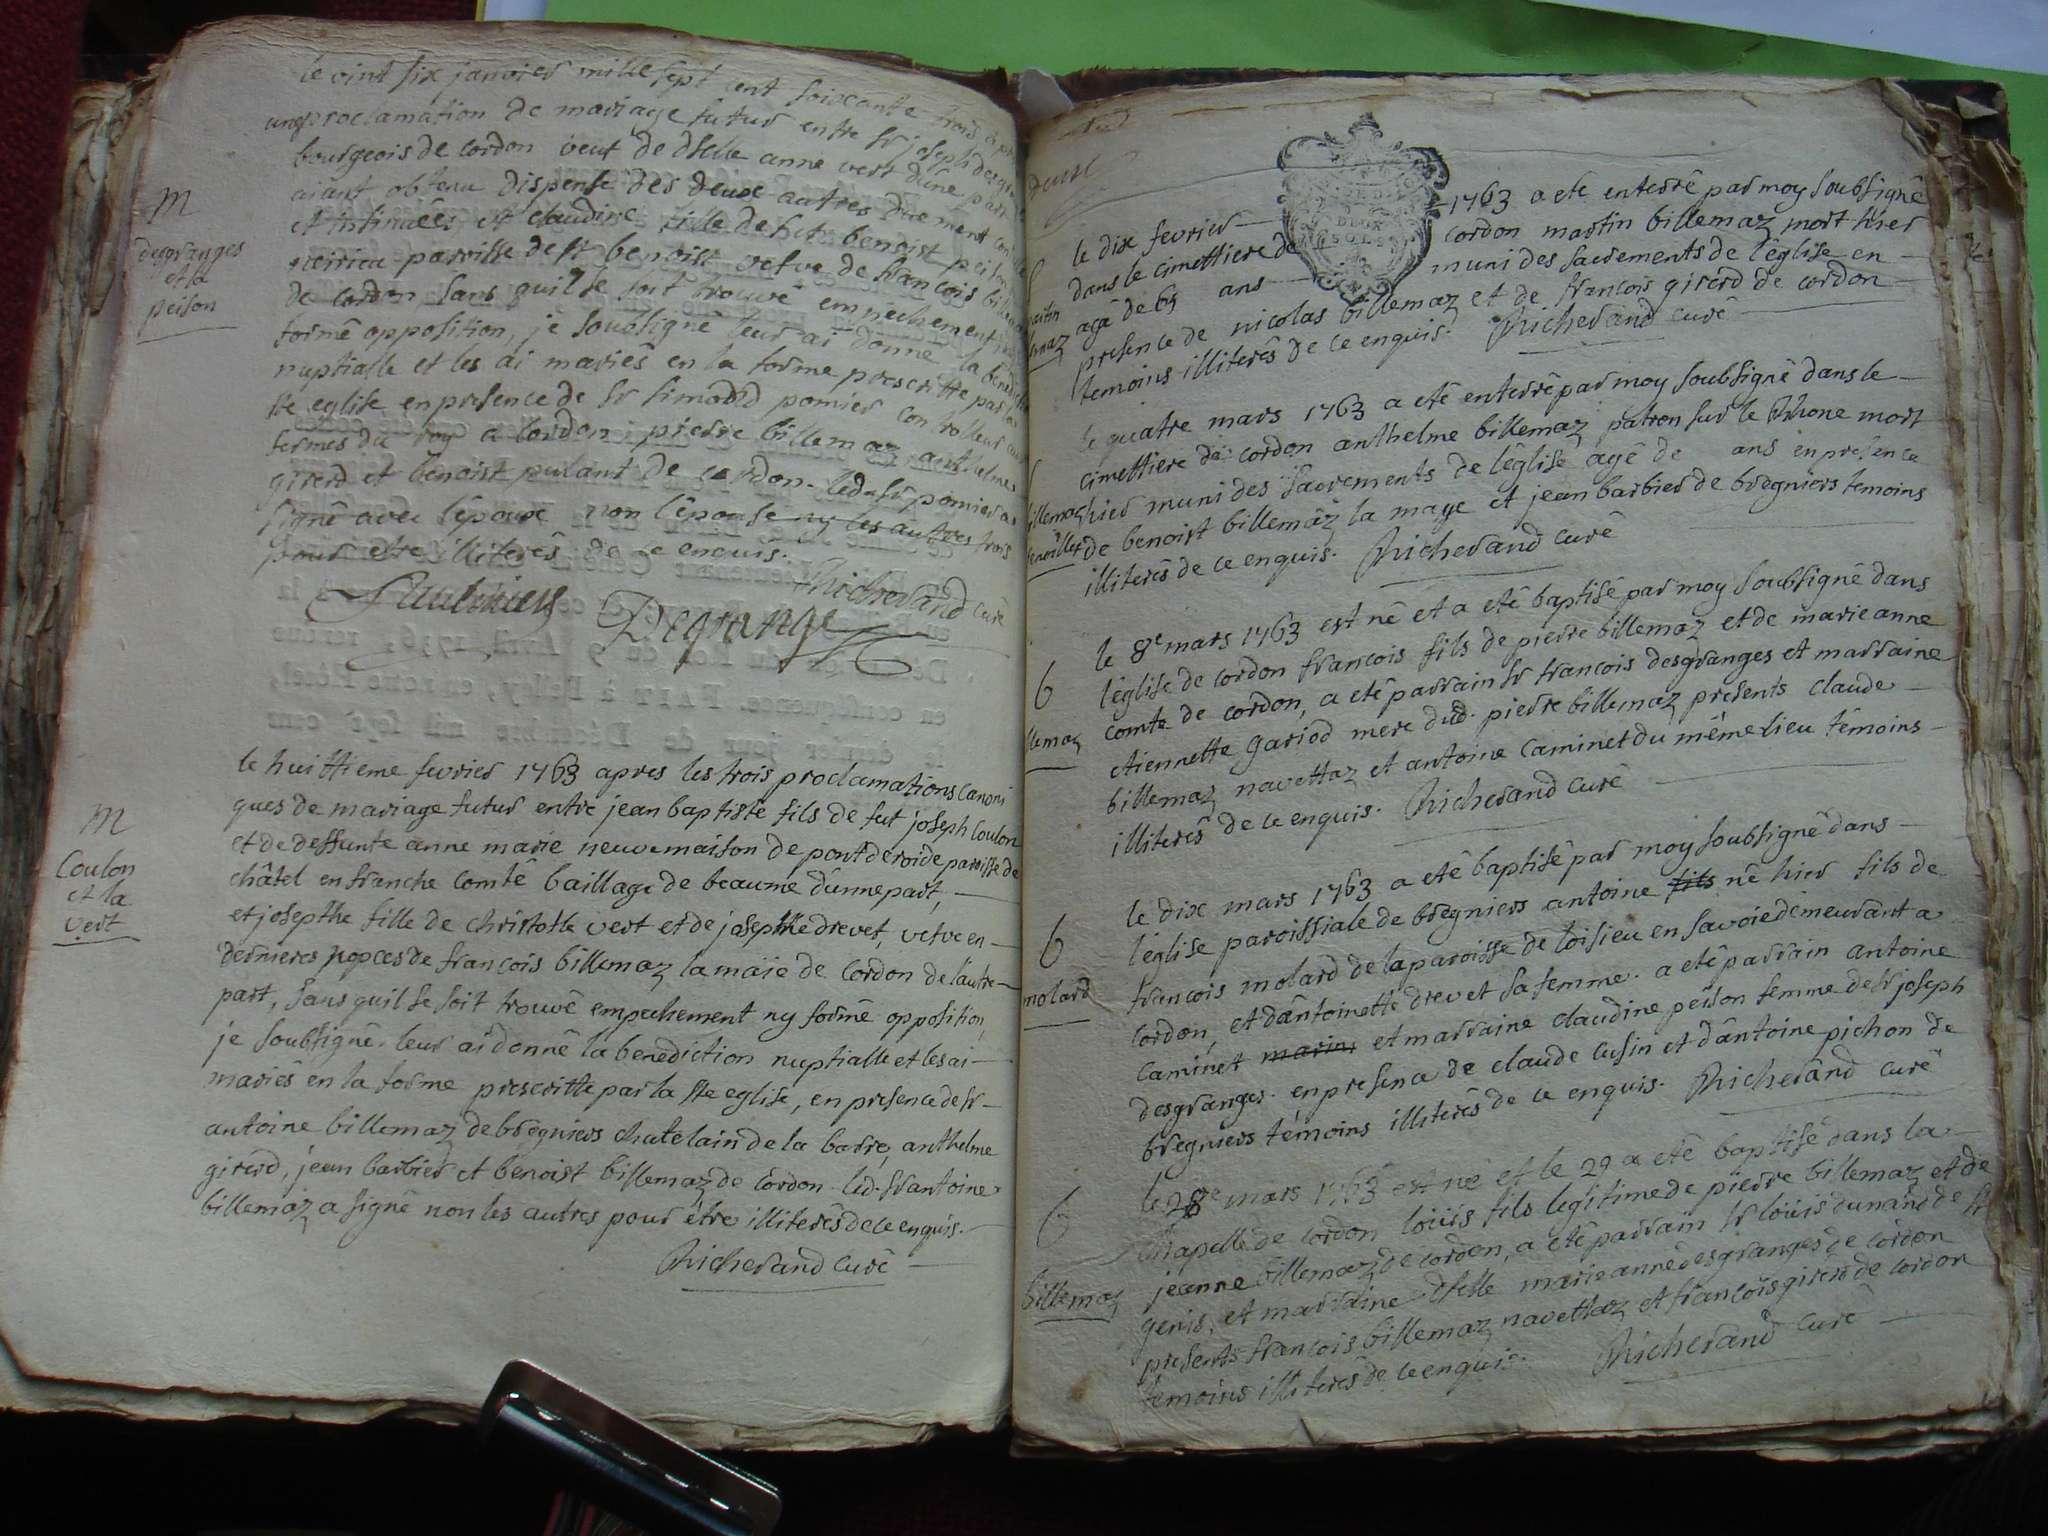 le vint six janvier mille sept cent soixante trois
une proclamation de mariage futur entre sr joseph
bourgeois de cordon veuf de dselle anne vert dûne part
aiant obtenu dispense des deux autres duement
et intimuées et claudine fille de fut benoist peison
parroisse de st benoist vefve de francois
de cordon sans quil se soit trouvé empechement
formé opposition, je soubsigné leur ai donné la
nuptialle et les ai mariés en la forme prescritte par la
ste eglise en presence de sr pomier controlleur
fermes du roy a cordon pierre billemaz anthelme
girerd et benoist pulant de cordon. led. sr pomier a
signé avec lépoux non lépouse ny les autres trois
pour etre illiterés de ce enquis.
Richerand curé
Degrange
M
degranges
et la
peison
le huittieme fevrier 1763 apres les trois proclamations canoni
ques de mariage futur entre jean baptiste fils de fut joseph Coulon
et de deffunte anne marie neuvemaison de pont de roide paroisse de
châtel en franche comté baillage de beaume dúnnepart,
et josepthe fille de christofle vert et de josepthe drevet, vefve en
dernieres nopces de francois billemaz la maïe de cordon de lautre
part, sans quil se soit trouvé empechement ny formé opposition,
je soubsigné leur ai donné la benediction nuptialle et les ai
mariés en la forme prescritte par la ste eglise, en presence de sr
antoine billemaz de bregniers chatelain de la barre, anthelme
girerd, jean barbier et benoist billemaz de cordon. led. sr antoine
billemaz a signé non les autres pour étre illiterés de ce enquis.
Richerand curé
M
Coulon
et la
vert
DEUX
SOLS
le dix fevrier 1763 a eté enterré par moy soubsigné
dans le cimettiere de cordon martin billemaz mort hier
agé de 65 ans muni des sacrements de l'église en
presence de nicolas billemaz et de francois girerd de cordon
temoins illiterés de ce enquis. Richerand curé
le quatre mars 1763 a eté enterré par moy soubsigné dans le
cimettiere de cordon anthelme billemaz patron sur le Rhone mort
hier muni des sacrements de léglise agé de ans en présence
de benoist billemâz la maye et jean barbier de bregniers temoins
illiterés de ce enquis. Richerand curé
le 8e mars 1763 est né et a eté baptisé par moy soubsigné dans
l'église de cordon francois fils de pierre billemaz et de marie anne
comte de cordon, a eté parrain sr francois desgranges et marraine
etiennette gariod mere dud. pierre billemaz presents claude
billemaz navettaz et antoine caminet du même lieu témoins
illiterés de ce enquis. Richerand curé
b
le dix mars 1763 a eté baptisé par moy soubsigné dans
l'église paroissiale de bregniers antoine fils né hier fils de
francois molard de la paroisse de loisieu en savoie demeurant a
cordon, et dântoinette drevet sa femme. a eté parrain antoine
caminet marin et marraine claudine peison femme de sr joseph
desgranges. en presence de claude cusin et dântoine pichon de
bregniers témoins illiterés de ce enquis. Richerand curé
b
molard
le 28e mars 1763 est né et le 29 a eté baptisé dans la
chapelle de cordon loüis fils legitime de pierre billemaz et de
jeanne billemaz de cordon, a eté parrain sr loüis dunand de st
genis, et marraine dselle marie anne desgranges de cordon
presents francois billemaz navettaz et francois girerd de cordon
temoins illiterés de ce enquis. Richerand curé
b
billemaz